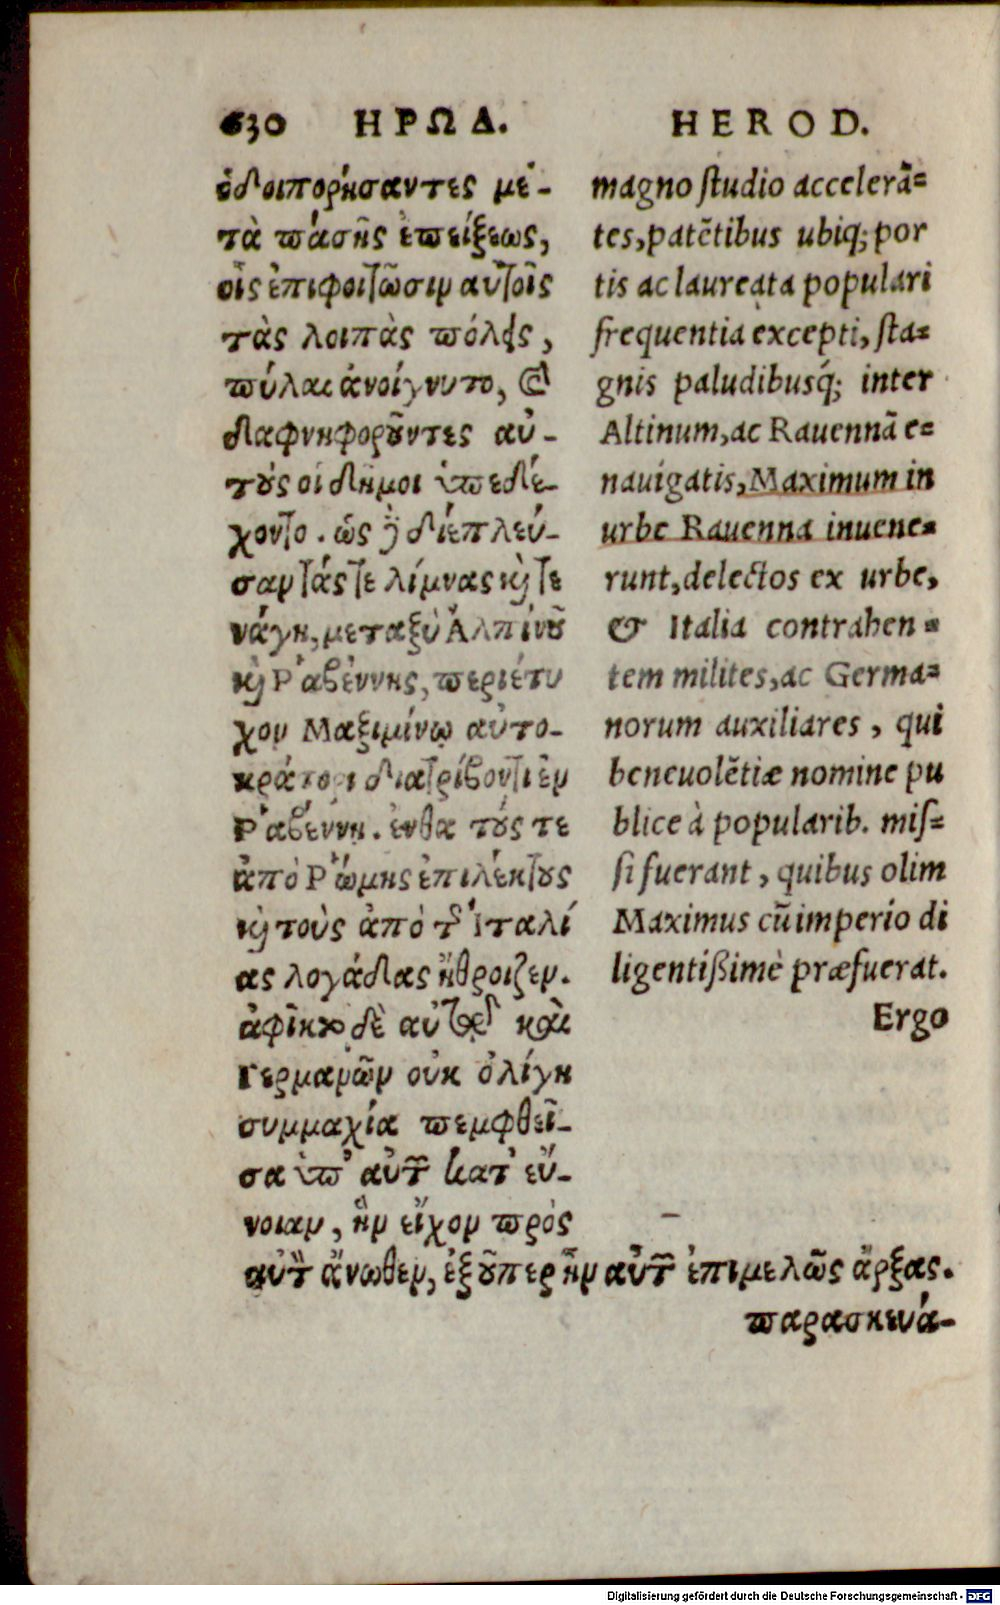 630 ΗΡΩΔ.
ὁδοιπορήσαντες με-
τὰ πάσης ἐπείξεως,
οἷς ἐπιφοιτῶσιν αὐτοῖς
τὰς λοιπὰς πόλεις,
πύλαι ἀνοίγνυτο, καὶ
δαφνηφοροῦντες αὐ-
τοὺς οἱ δῆμοι ὑπεδέ-
χοντο. ὡς δὲ διέπλευ-
σαν τάς τε λίμνας καὶ τε
νάγη, μεταξὺ Ἀλπίνου
καὶ Ῥαβέννης, περιέτυ
χον Μαξιμίνῳ αὐτο-
κράτορι διατρίβοντι ἐν
Ῥαβέννῃ. ἔνθα τούς τε
ἀπὸ Ῥώμης ἐπιλέκτους
καὶ τοὺς ἀπὸ τῆς Ἰταλί
ας λογάδας ἤθροιζεν.
ἀφῖκτο δὲ αὐτῷ καὶ
Γερμανῶν οὐκ ὀλίγη
συμμαχία πεμφθεῖ-
σα ὑπ' αὐτῶν κατ' εὔ-
νοιαν, ἣν εἶχον πρὸς
αὐτὸν ἄνωθεν, ἐξ οὗπερ ἦν αὐτῶν ἐπιμελῶς ἄρξας.
παρασκευά-
HEROD.
magno ſtudio accelerā=
tes, patētibus ubiq; por
tis ac laureata populari
frequentia excepti, ſta=
gnis paludibusq́; inter
Altinum, ac Rauennā e=
nauigatis, Maximum in
urbe Rauenna inuene=
runt, delectos ex urbe,
& Italia contrahen=
tem milites, ac Germa=
norum auxiliares, qui
beneuolētiæ nomine pu
blice à popularib. miſ=
ſi fuerant, quibus olim
Maximus cū imperio di
ligentißimè præfuerat.
Ergo
Digitalisierung gefördert durch die Deutsche Forschungsgemeinschaft - DFG